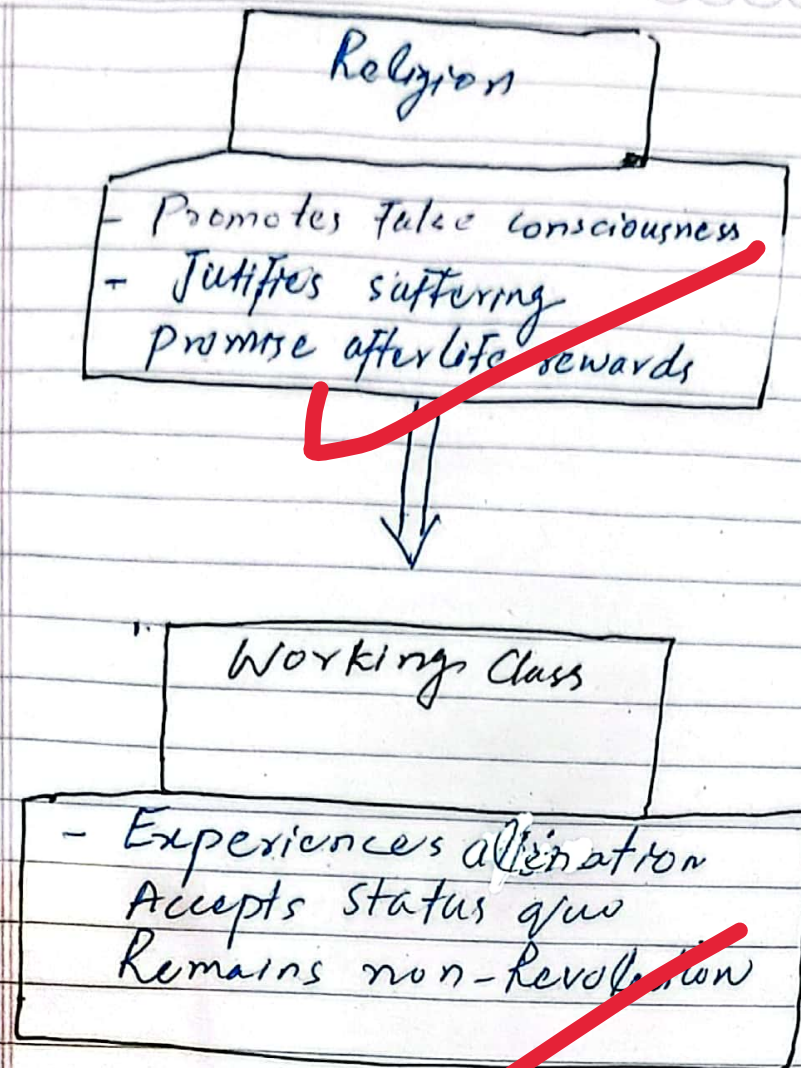 Religion
- Promotes false consciousness
- Jutifies suffering
promise afterlife rewards
Working Class
- Experiences alienation
Accepts status quo
Remains non-Revolution